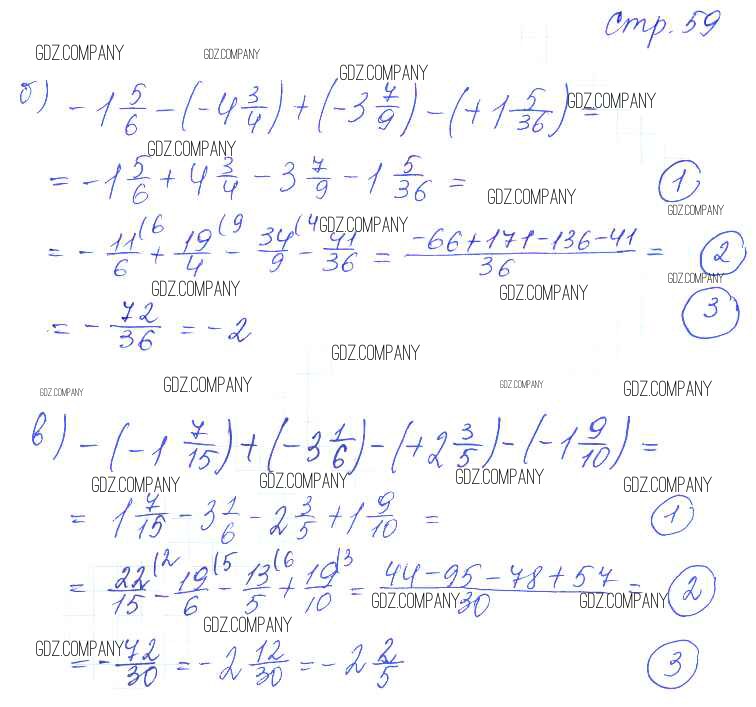 Стр. 59
GDZ.COMPANY GDZ.COMPANY GDZ.COMPANY
б) -1 5/6 - (-4 3/4) + (-3 7/9) - (+1 5/36) = GDZ.COMPANY
GDZ.COMPANY
= -1 5/6 + 4 3/4 - 3 7/9 - 1 5/36 = GDZ.COMPANY 1
GDZ.COMPANY
= - 11/6 (6 + 19/4 (9 - 34/9 (4 - 41/36 = (-66+171-136-41)/36 = 2
GDZ.COMPANY
GDZ.COMPANY GDZ.COMPANY GDZ.COMPANY
= - 72/36 = -2 3
GDZ.COMPANY
GDZ.COMPANY GDZ.COMPANY GDZ.COMPANY GDZ.COMPANY
в) -(-1 7/15) + (-3 1/6) - (+2 3/5) - (-1 9/10) =
GDZ.COMPANY GDZ.COMPANY GDZ.COMPANY GDZ.COMPANY
= 1 7/15 - 3 1/6 - 2 3/5 + 1 9/10 = 1
= 22/15 (2 - 19/6 (5 - 13/5 (6 + 19/10 (3 = (44-95-78+57)/30 = 2
GDZ.COMPANY GDZ.COMPANY
GDZ.COMPANY
GDZ.COMPANY
= - 72/30 = -2 12/30 = -2 2/5 3